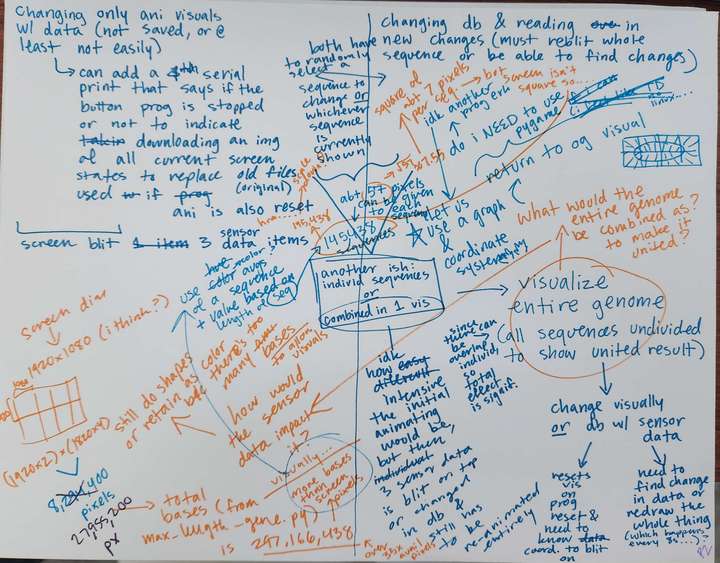 Changing only ani visuals
w/ data (not saved, or @
least not easily)
can add a serial
print that says if the
button prog is stopped
or not to indicate
downloading an img
of all current screen
states to replace old files
(original)
used if prog
ani is also reset
screen blit 1 item 3 sensor
data items
both have
to randomly
select a
sequence to
change or
whichever
sequence
is
currently
shown
Changing db & reading in
new changes (must reblit whole
sequence or be able to find changes)
square of
abt 7 pixels
per seq. → but
screen isn't
square so...
idk another
prog erh
do i NEED to use
pygame
linux...
return to og visual
abt 157 pixels
can be given
to each
sequence
145,438
145,438
sequences
let us
use a graph
&
coordinate
system
what would the
entire genome
be combined as?
to make it
united?
use color avgs
of a sequence
+ value based on
length of seq
another ish:
individ sequences
or
combined in 1 vis
visualize
entire genome
(all sequences undivided
to show united result)
screen dim
1920x1080 (i think?)
still do shapes
or retain as color
bc there's too
many bases
to allow
visuals
how would
the sensor
data impact
it?
visually...
more bases
than
screen
pixels
idk
how
intensive
the initial
animating
would be,
but then
individual
3 sensor data
is blit on top
or changed
in db &
still has
to be
re-animated
entirely
since
there can
be
overlap,
individ,
so
total
effect
is signif.
change visually
or db w/ sensor
data
resets
vis
on
prog
reset &
need to
know data
coord. to blit
on
need to
find change
in data or
redraw the
whole thing
(which happens
every 3s....)?
pixels
27,955,200
px
total
bases (from
max_length_gene.py)
is 247,166,438
over
35x avail
pixels